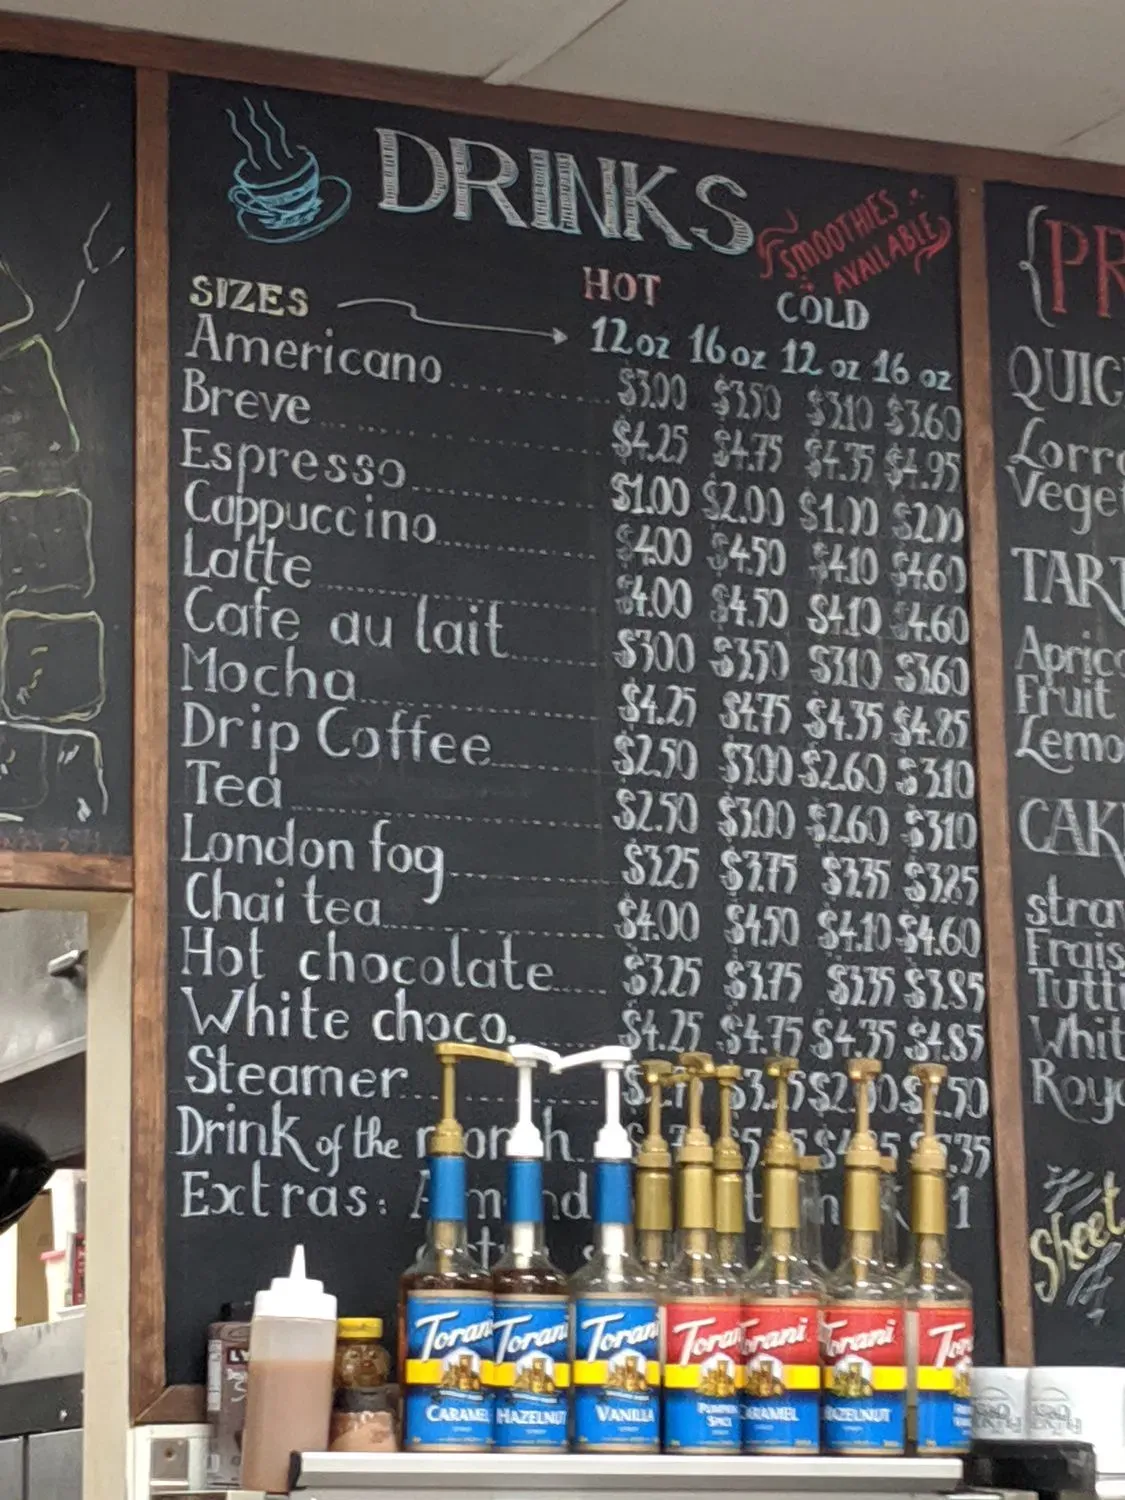 DRINKS
SMOOTHIES
AVAILABLE
SIZES HOT COLD
12 oz 16 oz 12 oz 16 oz
Americano $3.00 $3.50 $3.10 $3.60
Breve $4.25 $4.75 $4.35 $4.95
Espresso $1.00 $2.00 $1.00 $2.00
Cappuccino $4.00 $4.50 $4.10 $4.60
Latte $4.00 $4.50 $4.10 $4.60
Cafe au lait $3.00 $3.50 $3.10 $3.60
Mocha $4.25 $4.75 $4.35 $4.85
Drip Coffee $2.50 $3.00 $2.60 $3.10
Tea $2.50 $3.00 $2.60 $3.10
London fog $3.25 $3.75 $3.35 $3.85
Chai tea $4.00 $4.50 $4.10 $4.60
Hot chocolate $3.25 $3.75 $3.35 $3.85
White choco. $4.25 $4.75 $4.35 $4.85
Steamer
Drink of the
Extras:
Torani Torani Torani Torani Torani Torani Torani
CARAMEL HAZELNUT VANILLA PUMPKIN SPICE CARAMEL HAZELNUT
QUIC
Lorr
Veget
TART
Apric
Fruit
Lemo
CAK
straw
Frais
Tutti
Whit
Roya
Sheet